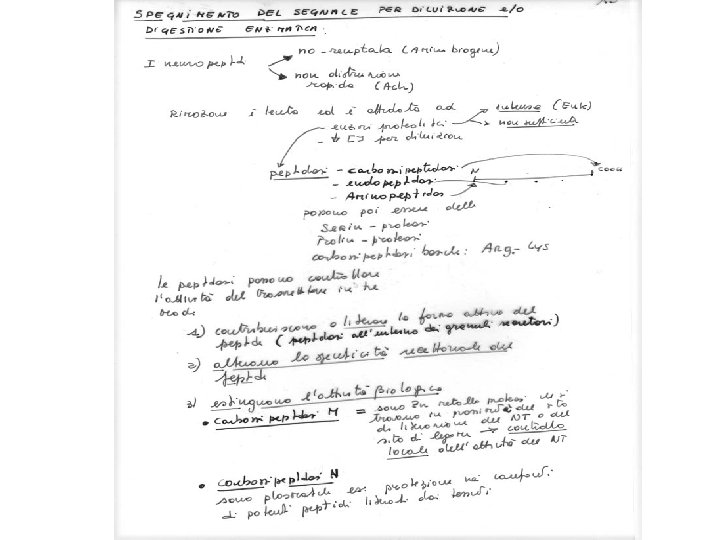 SPEGNIMENTO DEL SEGNALE PER DILUIZIONE e/o
DIGESTIONE ENZIMATICA:
I neuropeptd
no-reuptake (Amine biogene)
non distruzione
rapida (Ach)
Rimozione è lenta ed è affidata ad
intense (Enk)
- enzimi proteolitici
non sufficiente
- ↓ [ ] per diluizion
peptidasi - carbossipeptidasi N COOH
- endopeptidasi
- Aminopeptidas
possono poi essere delle
Serin-proteasi
Prolin-proteasi
carbossipeptidasi basiche: Arg-Lys
le peptidasi possono controllare
l'attività del trasmettitore in tre
modi
1) contribuiscono a liberare la forma attiva del
peptde (peptidasi all'interno dei granuli secretori)
2) alterano la specificità recettoriale del
peptde
3) estinguono l'attività Biologica
• carbossipeptdasi M = sono Zn metallo proteasi che si
trovano in prossimità del sito
di liberazione del NT o del
sito di legame → controllo
locale dell'attività del NT
• carbossipeptdasi N
sono plasmatiche es: protezione nei confronti
di potenti peptidi liberati dai tessuti